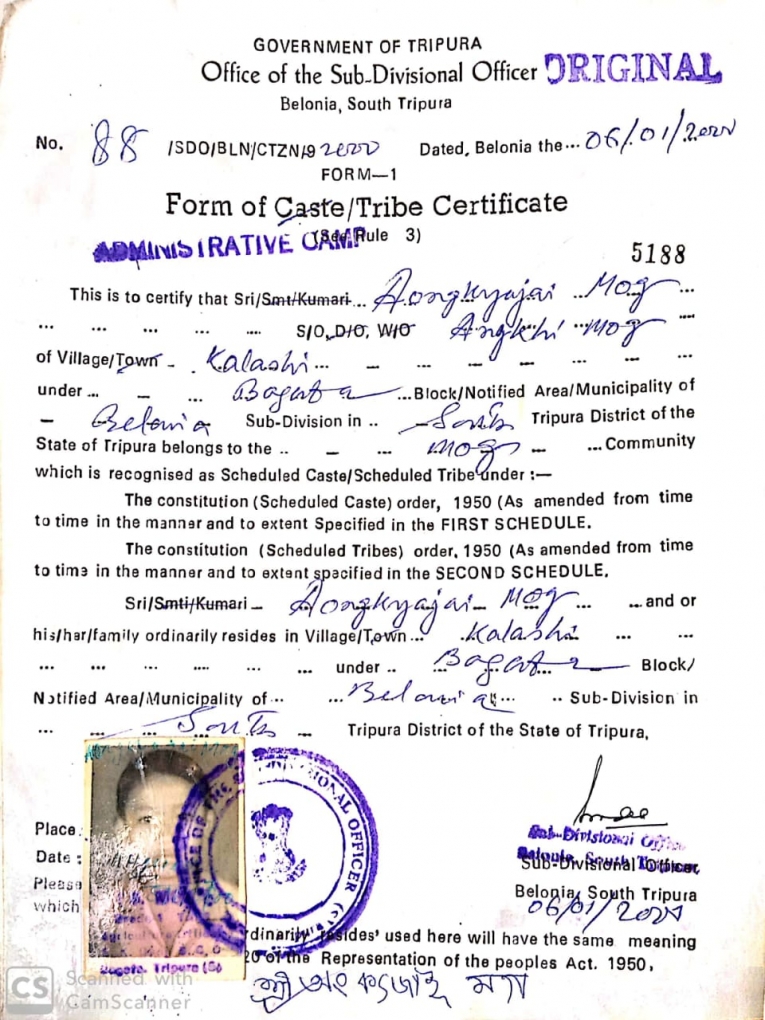 GOVERNMENT OF TRIPURA
Office of the Sub-Divisional Officer ORIGINAL
Belonia, South Tripura
No. 88 /SDO/BLN/CTZN/9 2000 Dated, Belonia the... 06/01/2000
FORM—1
Form of Caste/Tribe Certificate
(See Rule 3)
ADMINISTRATIVE CAMP
5188
This is to certify that Sri/Smt/Kumari... Aongkyajai ... Mog ...
... ... ... ... .... S/O, D/O, W/O Angkhi Mog
of Village/Town - Kalashi... — — — — —
under ... — — Bagafa ...Block/Notified Area/Municipality of
— Belonia Sub-Division in .. South Tripura District of the
State of Tripura belongs to the .. — — Mog — ... Community
which is recognised as Scheduled Caste/Scheduled Tribe under :—
The constitution (Scheduled Caste) order, 1950 (As amended from time
to time in the manner and to extent Specified in the FIRST SCHEDULE.
The constitution (Scheduled Tribes) order, 1950 (As amended from time
to time in the manner and to extent specified in the SECOND SCHEDULE.
Sri/Smti/Kumari — Aongkyajai — Mog ... ...and or
his/her/family ordinarily resides in Village/Town ... Kalashi ... ...
... ... ... .... ... ... under .. Bagafa Block/
Notified Area/Municipality of ... ... Belonia ... .. Sub-Division in
... ... South ... — Tripura District of the State of Tripura,
Place
Date :
Please
which
SUB-DIVISIONAL OFFICER
Sub-Divisional Officer
Belonia, South Tripura
Sub-Divisional Officer
Belonia, South Tripura
06/01/2000
rdinarily resides' used here will have the same meaning
20 of the Representation of the peoples Act. 1950,
Tripura (S)
শ্রী অং ক্যজাই মগ
CS Scanned with
CamScanner